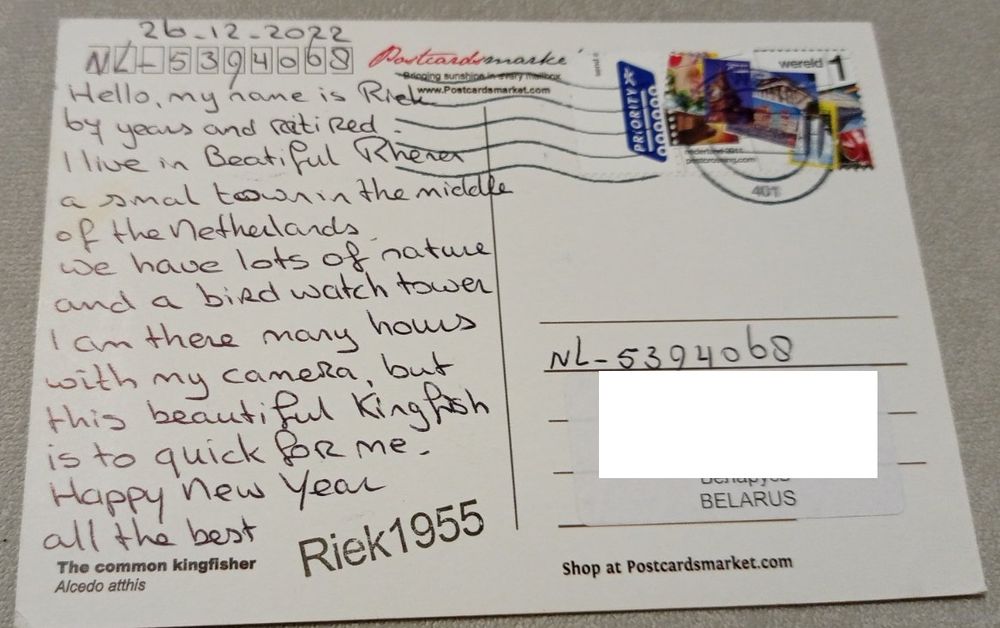 26-12-2022
NL-5394068
Postcardsmarke
Bringing sunshine in every mailbox
www.Postcardsmarket.com
PRIORITY
wereld 1
nederland 2011
postcrossing.com
401
Hello, my name is Riek
by years and retired.
I live in Beatiful Rhenen
a smal town in the middle
of the Netherlands.
we have lots of nature
and a bird watch tower
I am there many hours
with my camera, but
this beautiful Kingfish
is to quick for me.
Happy New Year
all the best
Riek1955
The common kingfisher
Alcedo atthis
NL-5394068
Беларусь
BELARUS
Shop at Postcardsmarket.com